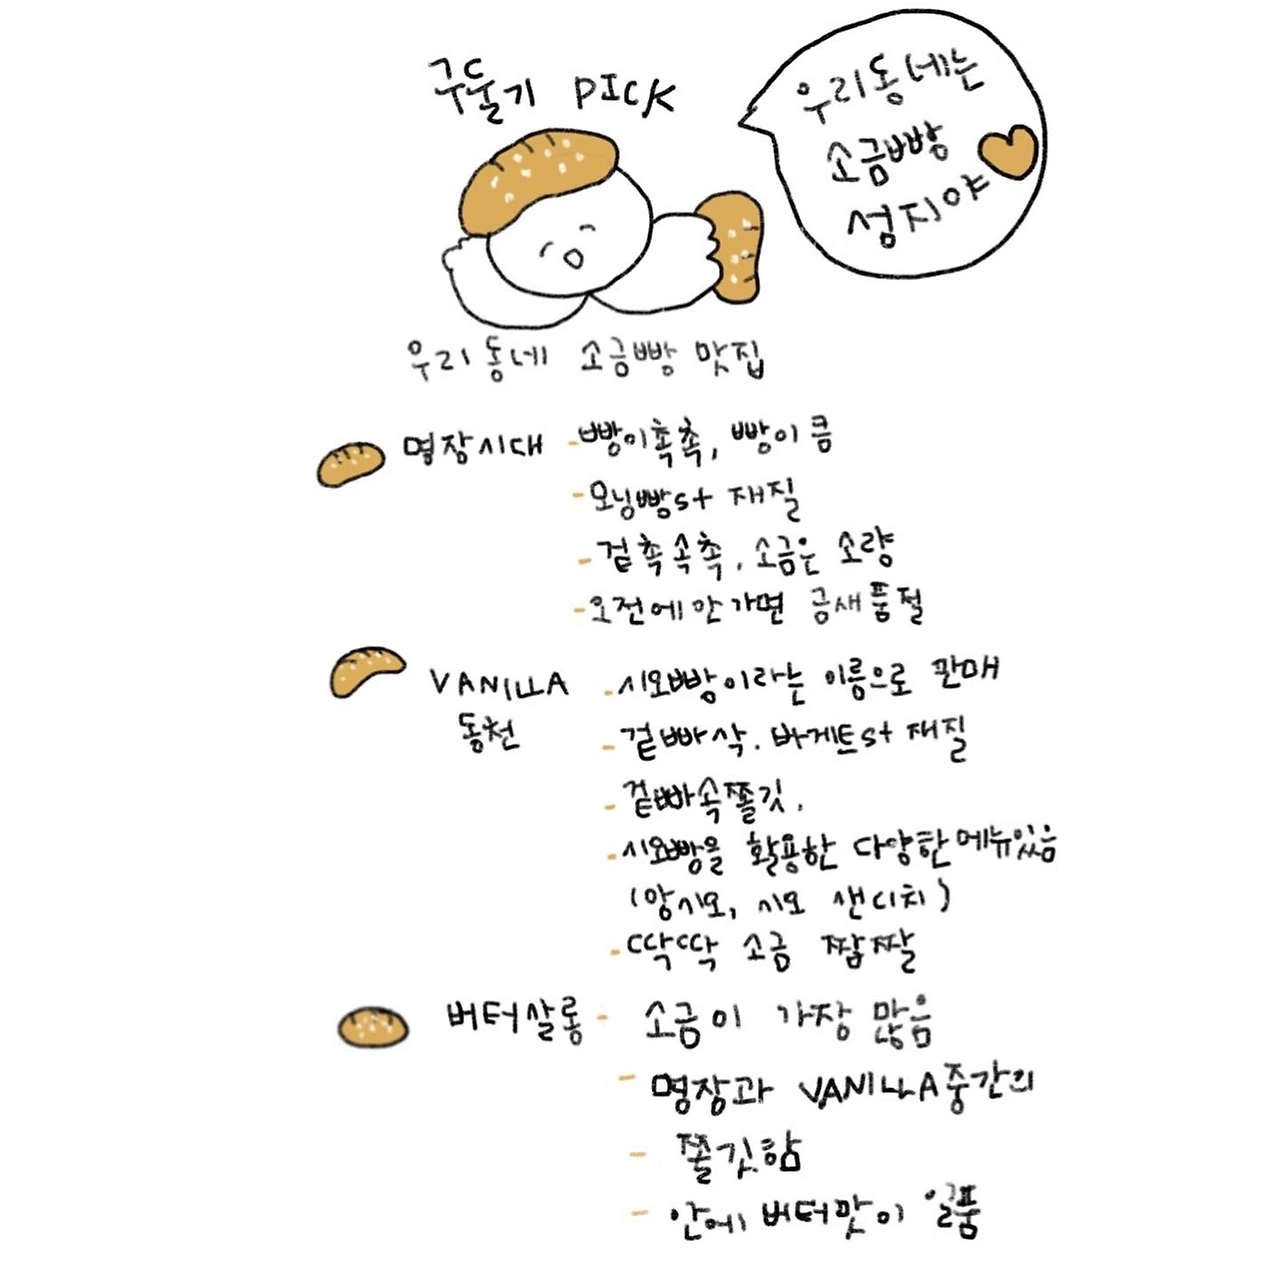 구둘기 PICK
우리동네는
소금빵
성지야
우리동네 소금빵 맛집
명장시대 -빵이촉촉, 빵이 큼
-모닝빵st 재질
-겉촉속촉. 소금은 소량
-오전에안가면 금새품절
VANILLA -시오빵이라는 이름으로 판매
동천 -겉빠삭. 바게트st 재질
-겉빠속쫄깃.
-시오빵을 활용한 다양한메뉴있음
(앙시오, 시오 샌디치)
-딱딱 소금 짭짤
버터살롱 - 소금이 가장 많음
- 명장과 VANILLA중간의
- 쫄깃함
- 안에 버터맛이 일품